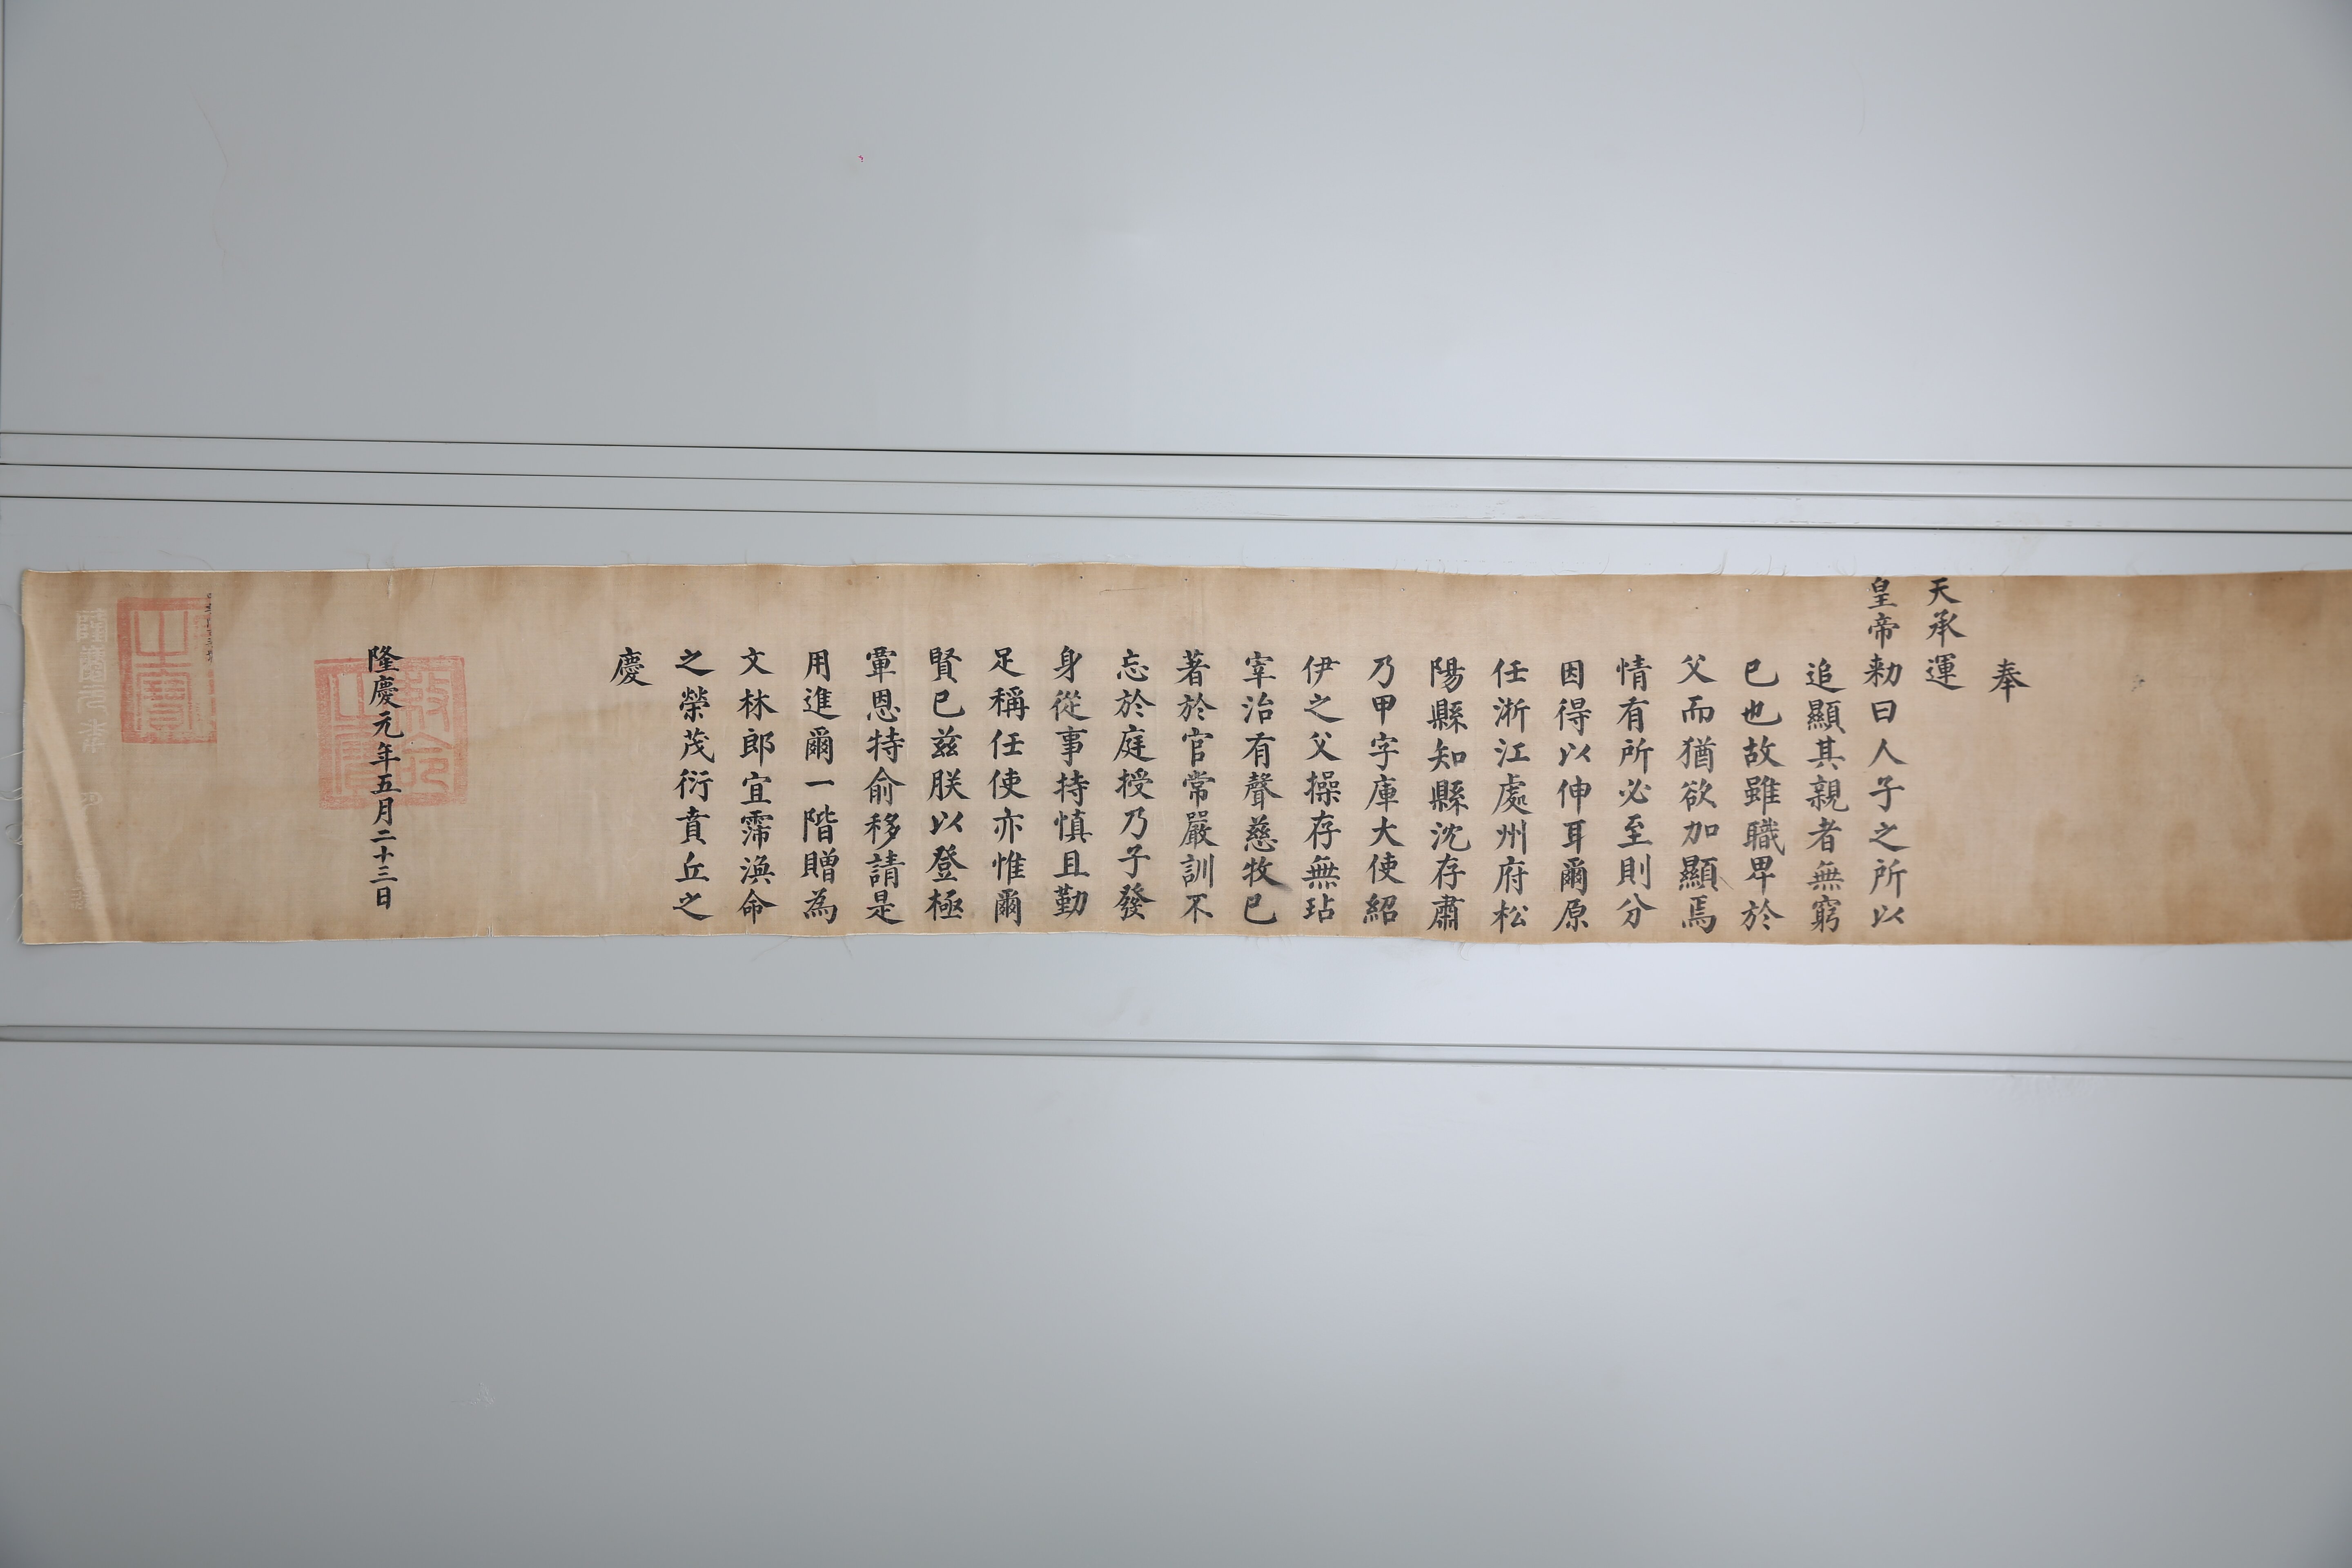 奉
天承運
皇帝勑曰人子之所以
追顯其親者無窮
已也故雖職卑於
父而猶欲加顯焉
情有所必至則分
因得以伸耳爾原
任浙江處州府松
陽縣知縣沈存肅
乃甲字庫大使紹
伊之父操存無玷
宰治有聲慈牧已
著於官常嚴訓不
忘於庭授乃子發
身從事持慎且勤
足稱任使亦惟爾
賢已兹朕以登極
覃恩特俞移請是
用進爾一階贈為
文林郎宜霈渙命
之榮茂衍賁丘之
慶
隆慶元年五月二十三日
敕命之寶
之寶
隆慶元年